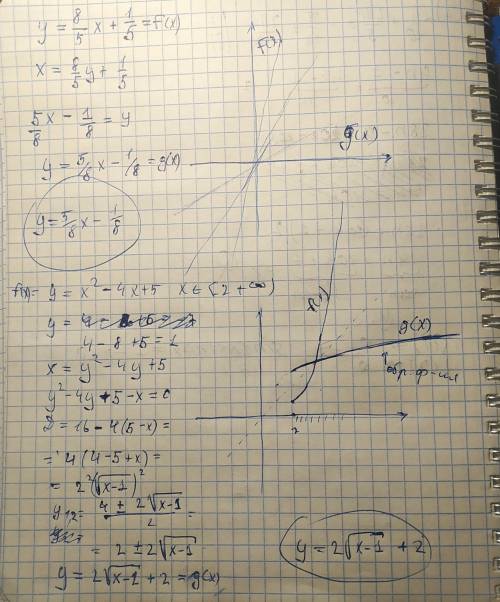 y = 8/5 x + 1/5 = f(x)
x = 8/5 y + 1/5
5/8 x - 1/8 = y
y = 5/8 x - 1/8 = g(x)
y = 5/8 x - 1/8
f(x)
g(x)
f(x) = y = x² - 4x + 5 x ∈ [2 + ∞)
y =
4 - 8 + 5 = 1
x = y² - 4y + 5
y² - 4y + 5 - x = 0
D = 16 - 4(5 - x) =
= 4(4 - 5 + x) =
= 2²(√x-1)²
y₁,₂ = 4 ± 2√x-1 / 2 =
= 2 ± 2√x-1
y = 2√x-1 + 2 = g(x)
f(x)
g(x)
обр-ф-ия
2
y = 2√x-1 + 2